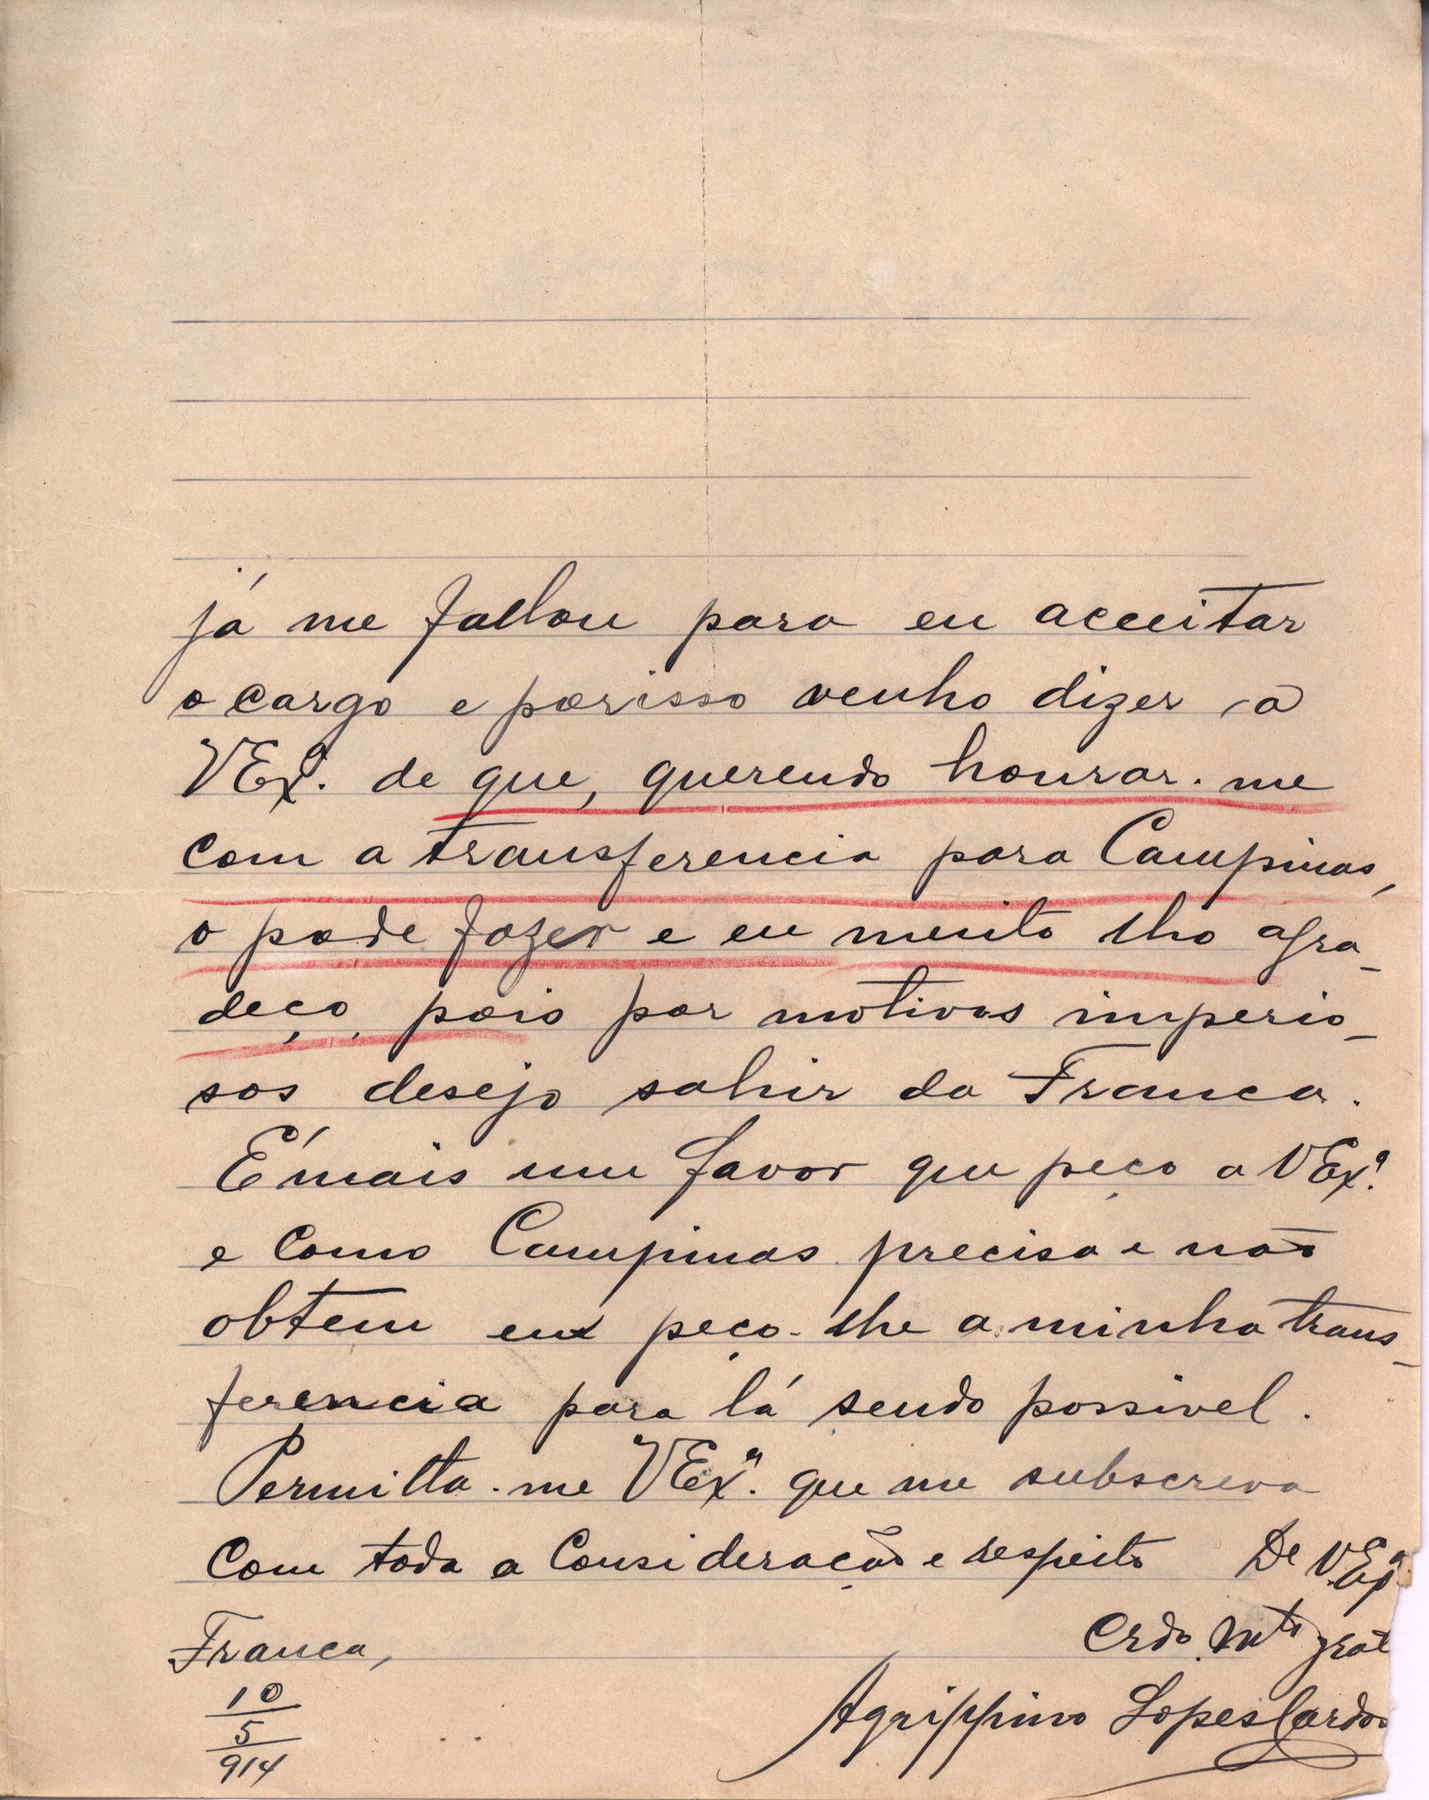 já me fallou para eu acceitar
o cargo e porisso venho dizer a
VExª. de que, querendo honrar-me
com a transferencia para Campinas,
o pode fazer e eu muito lho agra-
deço, pois por motivos imperio-
sos desejo sahir da Franca.
É mais um favor que peço a VExª.
e como Campinas precisa e não
obtem eu peço-lhe a minha trans-
ferencia para lá sendo possivel.
Permitta-me VExª. que me subscreva
com toda a consideração e respeito De V.Exª.
Crdo. Mto grat
Franca,
Agrippino Lopes Cardo
10
5
914